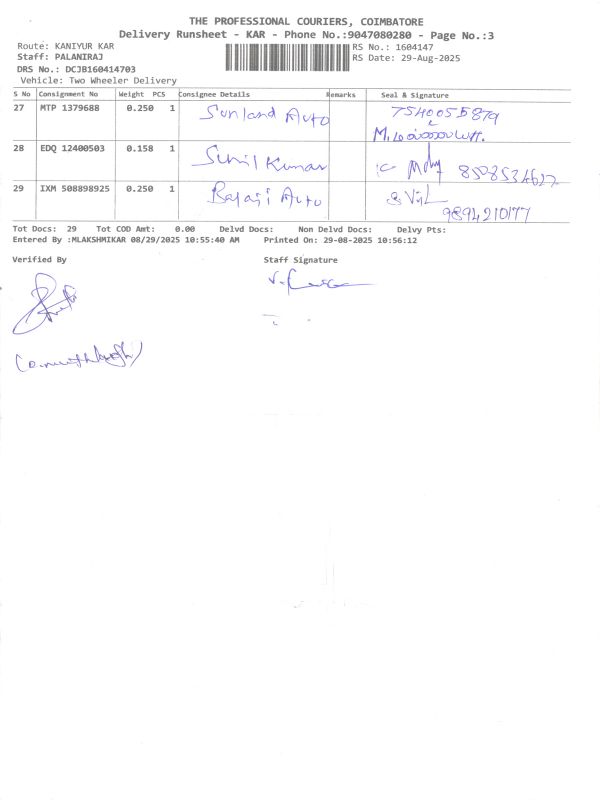 THE PROFESSIONAL COURIERS, COIMBATORE
Delivery Runsheet - KAR - Phone No.:9047080280 - Page No.:3
Route: KANIYUR KAR RS No.: 1604147
Staff: PALANIRAJ RS Date: 29-Aug-2025
DRS No.: DCJB160414703
Vehicle: Two Wheeler Delivery
S No Consignment No Weight PCS Consignee Details Remarks Seal & Signature
27 MTP 1379688 0.250 1 Sunland Auto 7540055879
28 EDQ 12400503 0.158 1 Sunil Kumar 8508534622
29 IXM 508898925 0.250 1 Balaji Auto 9894210177
Tot Docs: 29 Tot COD Amt: 0.00 Delvd Docs: Non Delvd Docs: Delvy Pts:
Entered By :MLAKSHMIKAR 08/29/2025 10:55:40 AM Printed On: 29-08-2025 10:56:12
Verified By Staff Signature